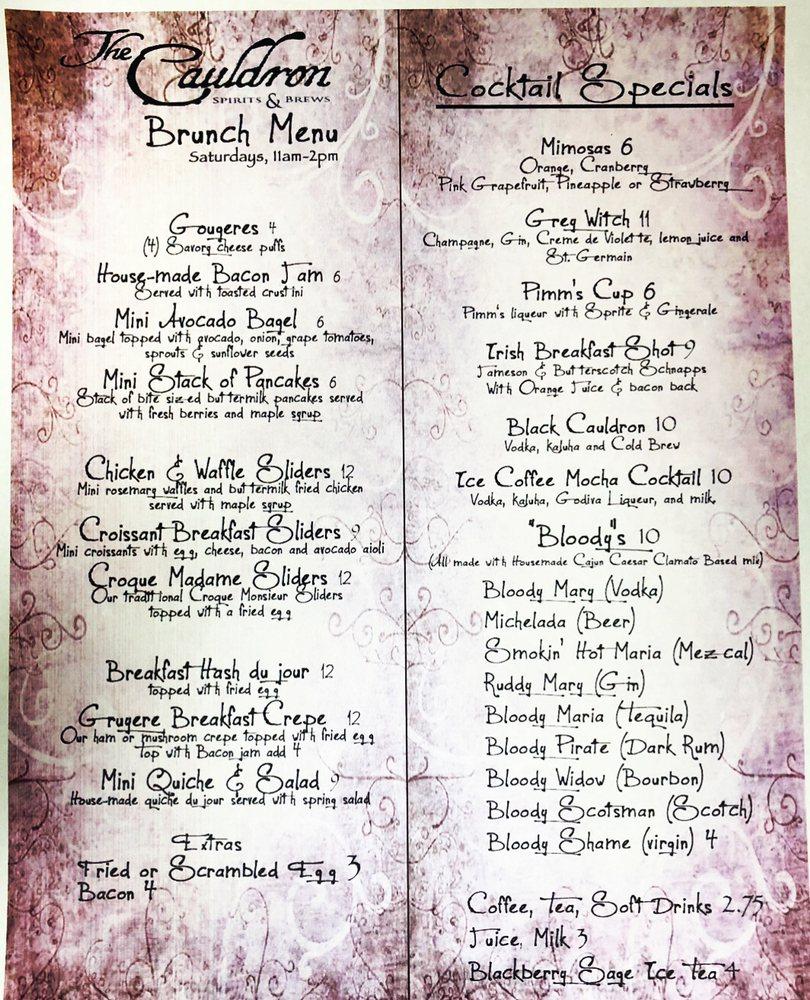 The
Cauldron
SPIRITS & BREWS
Brunch Menu
Saturdays, 11am-2pm
Gougeres 4
(4) Savory cheese puffs
House-made Bacon Jam 6
Served with toasted crustini
Mini Avocado Bagel 6
Mini bagel topped with avocado, onion, grape tomatoes,
sprouts & sunflower seeds
Mini Stack of Pancakes 6
Stack of bite sized buttermilk pancakes served
with fresh berries and maple syrup
Chicken & Waffle Sliders 12
Mini rosemary waffles and buttermilk fried chicken
served with maple syrup
Croissant Breakfast Sliders 9
Mini croissants with egg, cheese, bacon and avocado aioli
Croque Madame Sliders 12
Our traditional Croque Monsieur Sliders
topped with a fried egg
Breakfast Hash du jour 12
topped with fried egg
Gruyere Breakfast Crepe 12
Our ham or mushroom crepe topped with fried egg
top with Bacon jam add 4
Mini Quiche & Salad 9
House-made quiche du jour served with spring salad
Extras
Fried or Scrambled Egg 3
Bacon 4
Cocktail Specials
Mimosas 6
Orange, Cranberry
Pink Grapefruit, Pineapple or Strawberry
Grey Witch 11
Champagne, Gin, Creme de Violette, lemon juice and
St. Germain
Pimm's Cup 6
Pimm's liqueur with Sprite & Gingerale
Irish Breakfast Shot 9
Jameson & Butterscotch Schnapps
With Orange Juice & bacon back
Black Cauldron 10
Vodka, kaluha and Cold Brew
Ice Coffee Mocha Cocktail 10
Vodka, kaluha, Godiva Liqueur, and milk
"Bloody"s 10
(All made with Housemade Cajun Caesar Clamato Based mix)
Bloody Mary (Vodka)
Michelada (Beer)
Smokin' Hot Maria (Mezcal)
Ruddy Mary (Gin)
Bloody Maria (Tequila)
Bloody Pirate (Dark Rum)
Bloody Widow (Bourbon)
Bloody Scotsman (Scotch)
Bloody Shame (virgin) 4
Coffee, Tea, Soft Drinks 2.75
Juice, Milk 3
Blackberry Sage Ice Tea 4